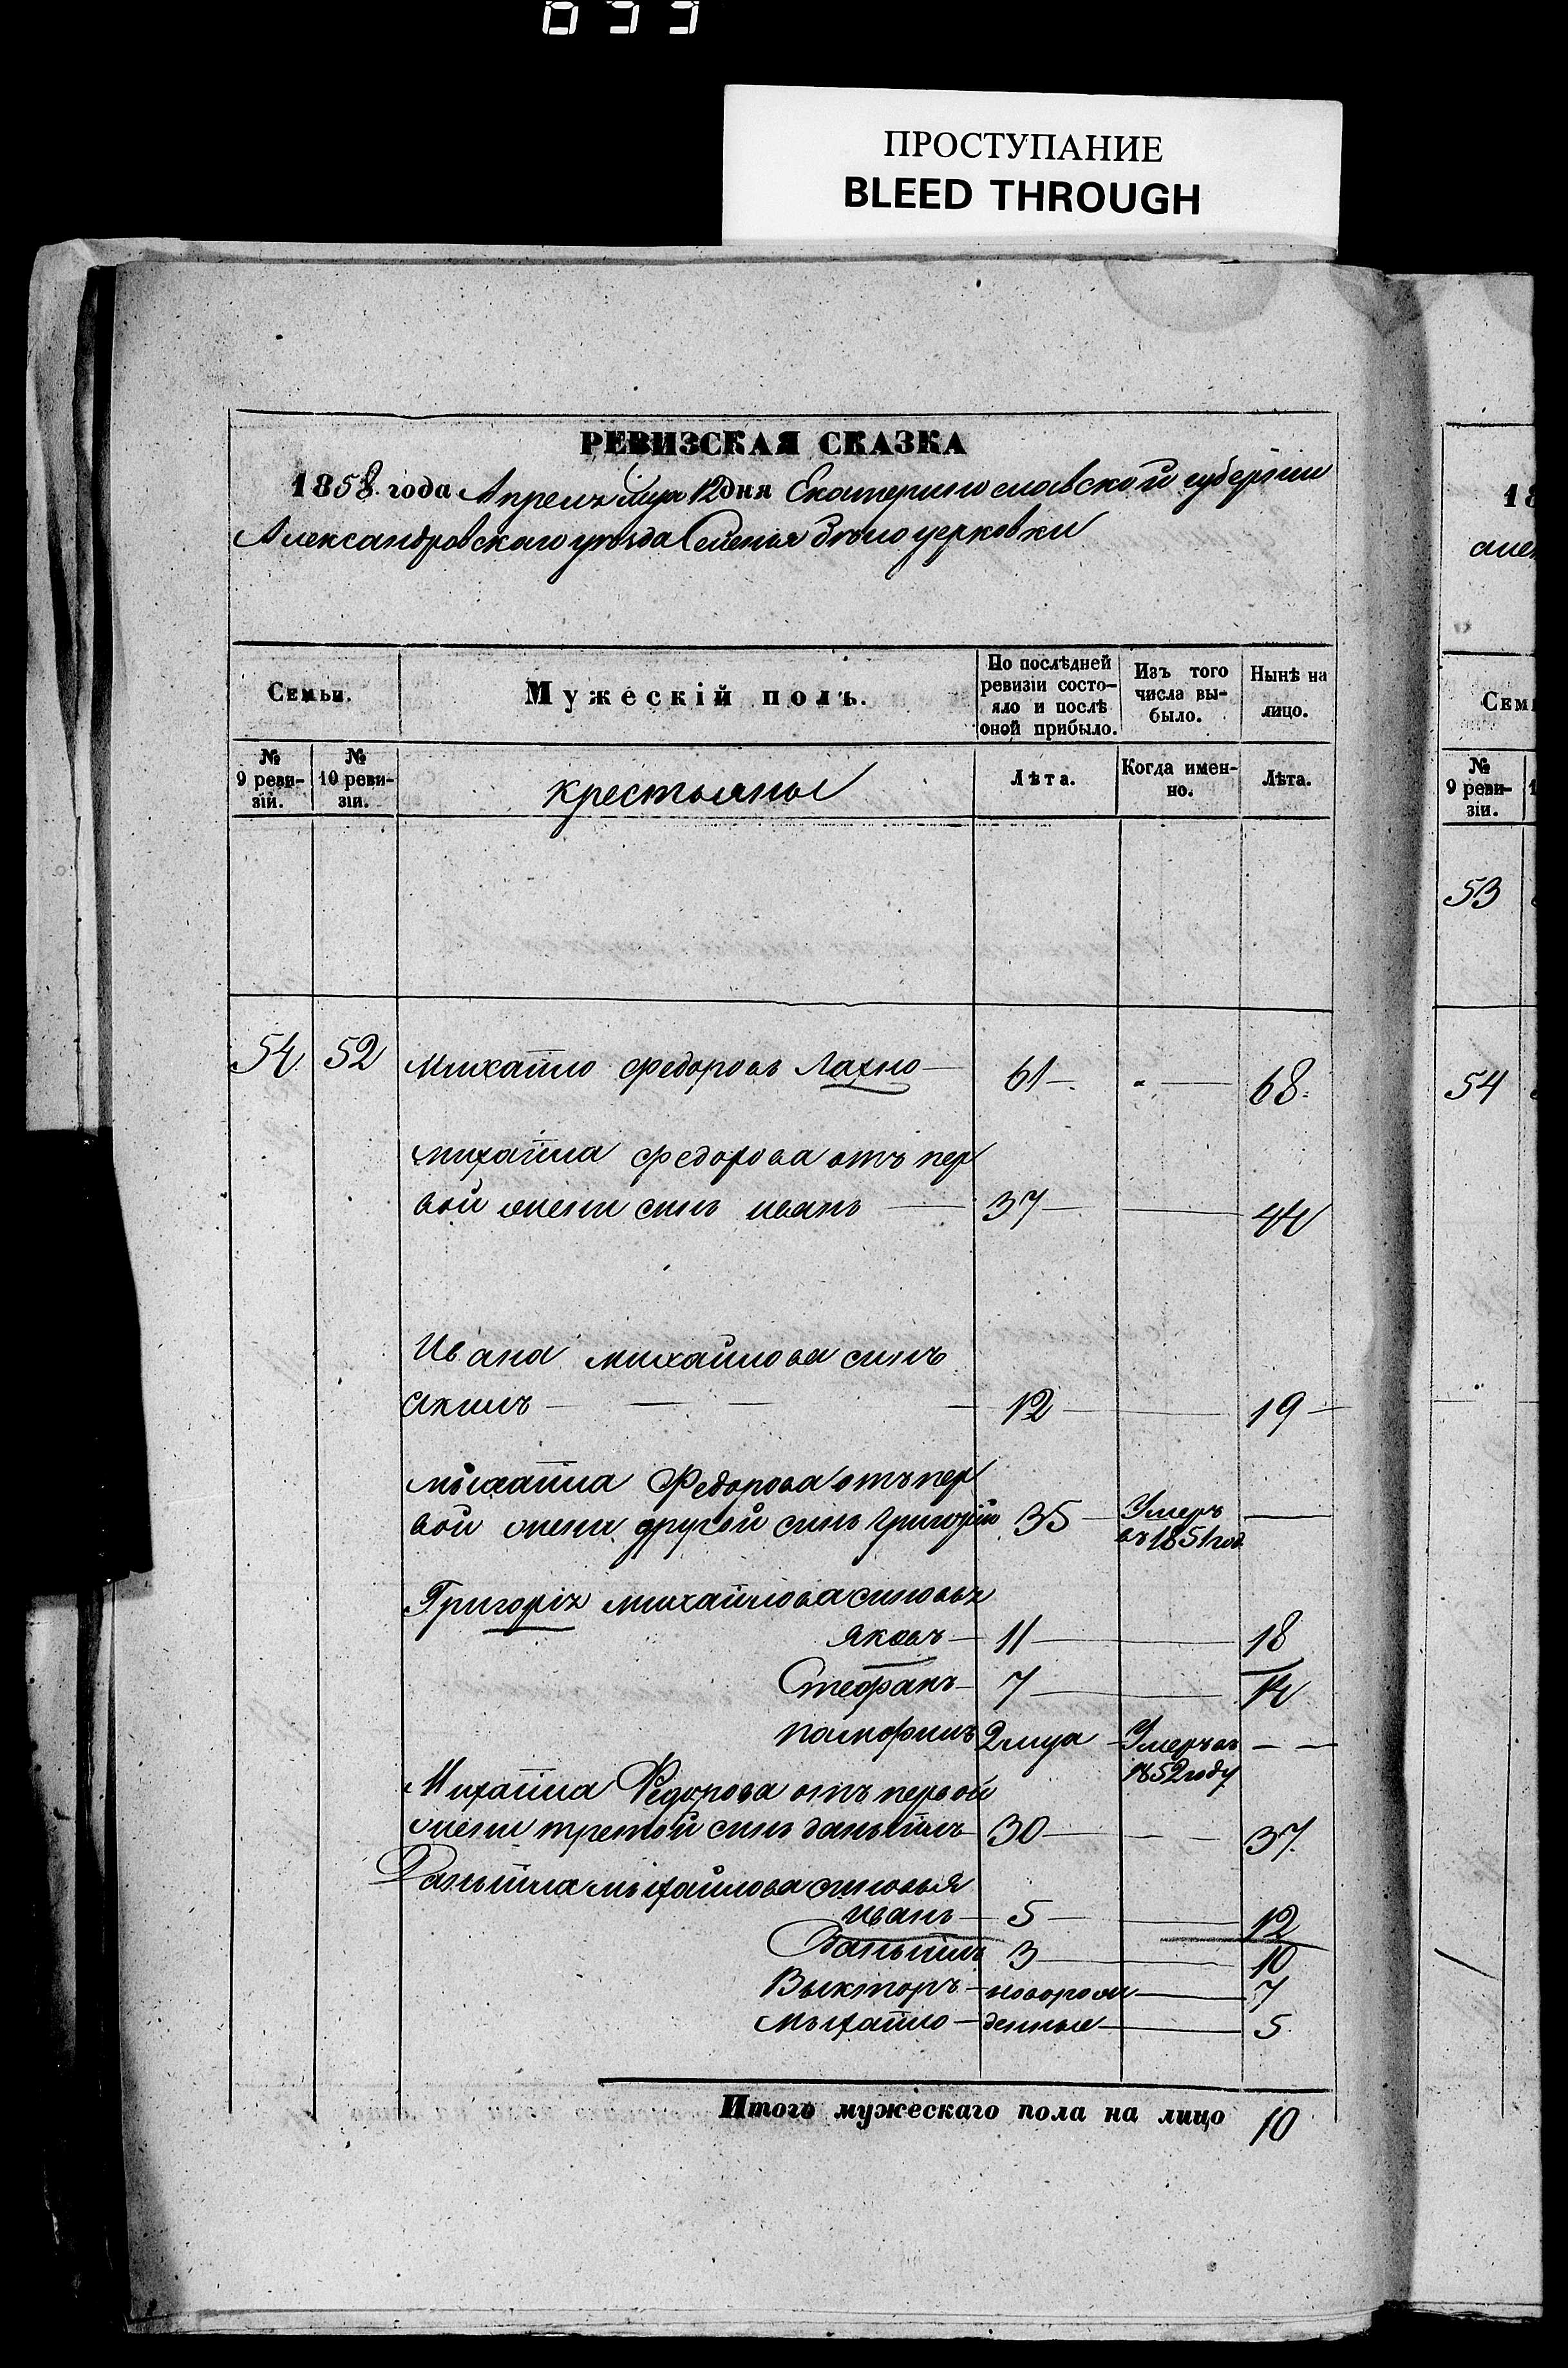 033
ПРОСТУПАНИЕ
BLEED THROUGH
РЕВИЗСКАЯ СКАЗКА
1858 года Апреля мця 12 дня Екатеринославской губернии
Александровскаго уезда Селенья белоцерковки
Семьи.
Мужескій полъ.
По послѣдней ревизіи состо-
яло и послѣ
оной прибыло.
Изъ того
числа вы-
было.
Нынѣ на
лицо.
№
9 реви-
зій.
№
10 реви-
зіи.
крестьяны
Лѣта.
Когда имен-
но.
Лѣта.
54 52 Михайло федоровъ Лахно 61 68
михайла федорова отъ пер
вой жены синъ иванъ 37 44
Ивана михайлова синъ
акимъ 12 19
мыхайла Федорова отъ пер
вой жены другой синъ григорій 35 Умеръ
въ 1851 год
Григорія михайлова синовья
яковъ 11 18
Стефанъ 7 14
памфилъ 2 мця Умеръ въ
1852 году
Михайла Федорова отъ первой
жены третой синъ даныилъ 30 37
Даныила мыхайлова синовья
иванъ 5 12
Даныилъ 3 10
Выкторъ новорож 7
Мыхайло денные 5
Итогъ мужескаго пола на лицо 10
18
Сем
№
9 реви-
зіи.
53
54